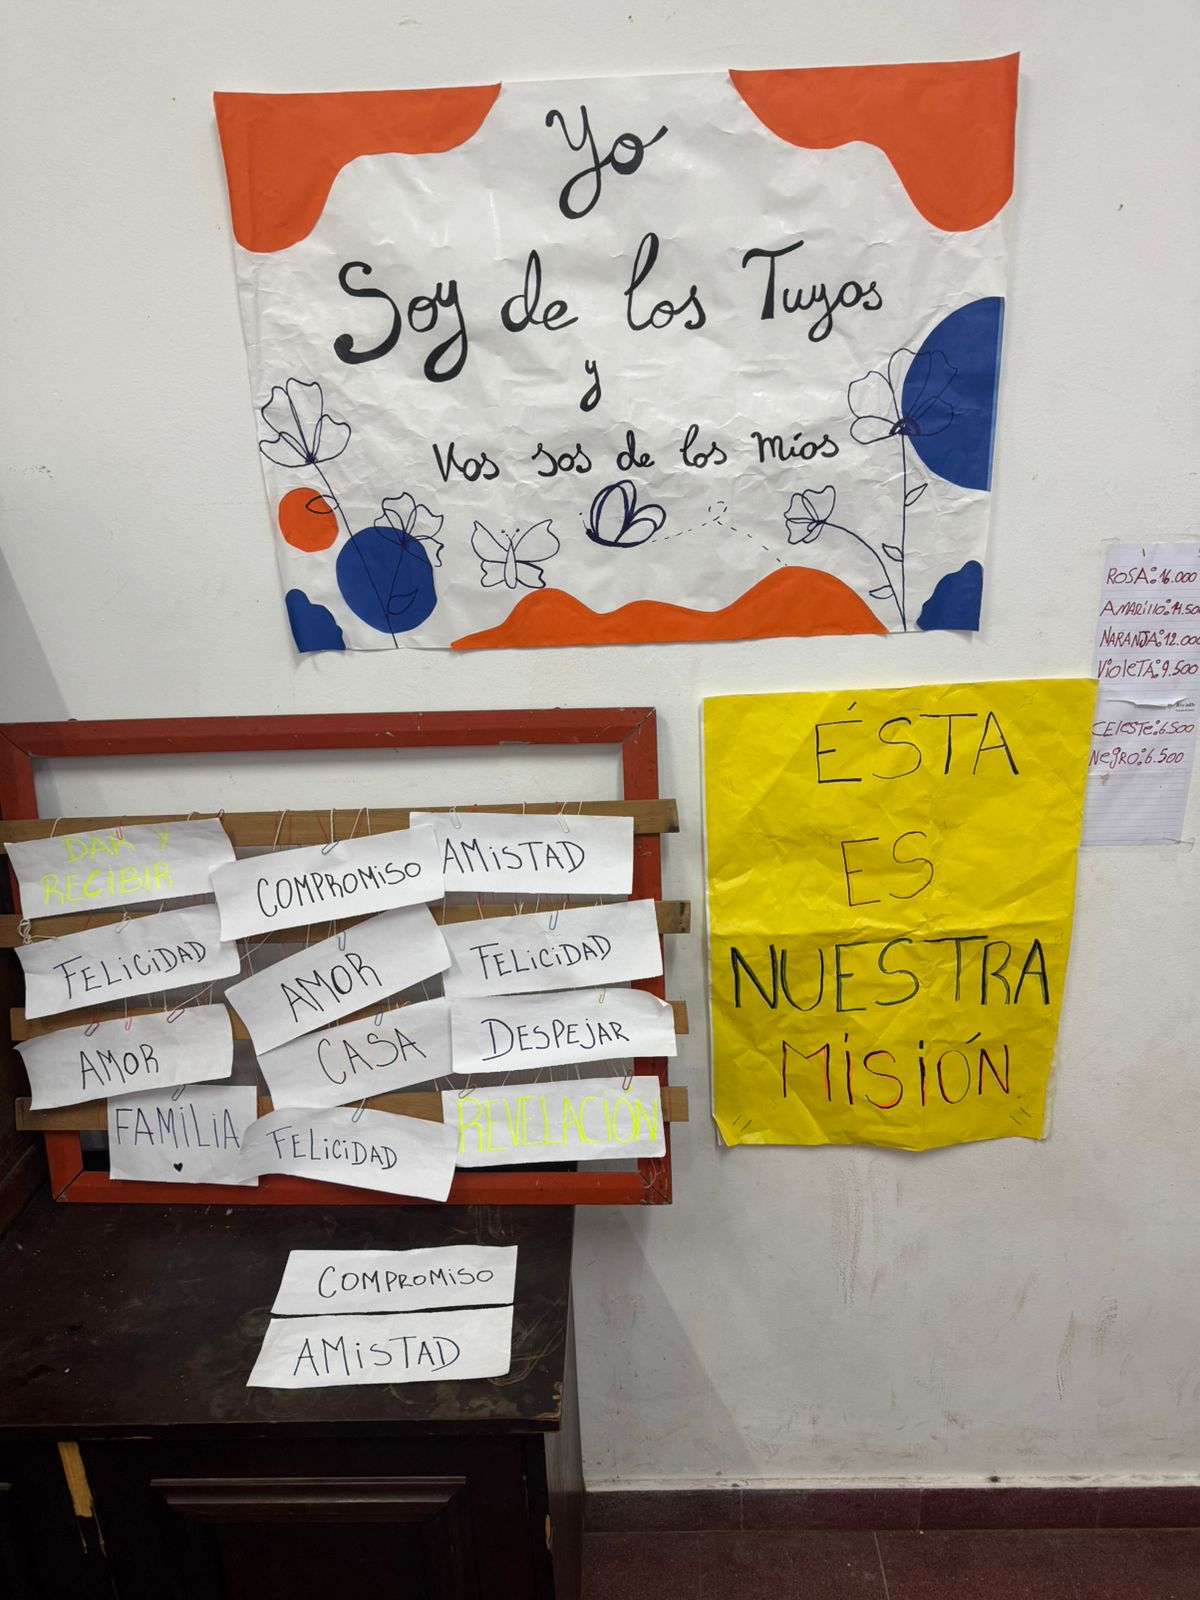 Yo
Soy de los Tuyos
y
Vos sos de los míos
ROSA: 16.000
AMARILLO: 11.500
NARANJA: 12.000
VIOLETA: 9.500
CELESTE: 6.500
NEGRO: 6.500
ÉSTA
ES
NUESTRA
MISIÓN
DAR Y
RECIBIR
COMPROMISO
AMISTAD
FELICIDAD
AMOR
FELICIDAD
AMOR
CASA
DESPEJAR
FAMILIA
FELICIDAD
REVELACIÓN
COMPROMISO
AMISTAD